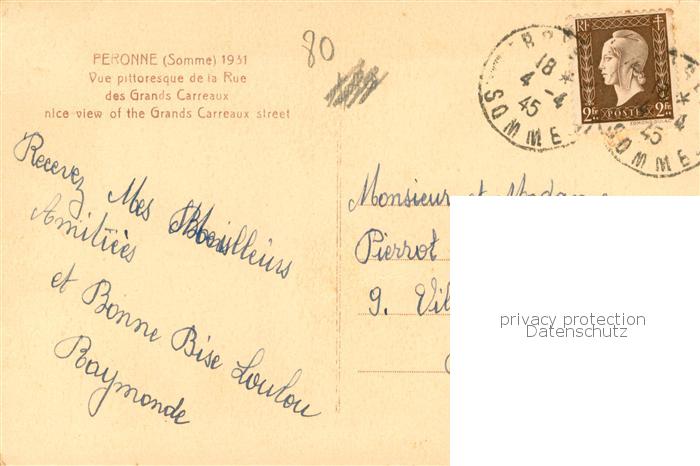 PERONNE (Somme) 1931
Vue pittoresque de la Rue
des Grands Carreaux
nice view of the Grands Carreaux street
80
RF
2fr POSTES 2fr
18
4-4
45
SOMME
45
SOMME
Recevez Mes Meilleurs
Amitiées
et Bonne Bise Loulou
Raymonde
Monsieur et Madame
Pierrot
9. Vil
privacy protection
Datenschutz